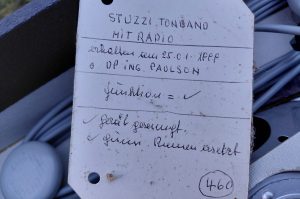 STUZZI, TONBAND
MIT RADIO
erhalten am 25.01.1999
v. DP ING. PAULSON
funktion = ✓
✓ Gerät gereinigt.
✓ Gummi Riemen ersetzt
460